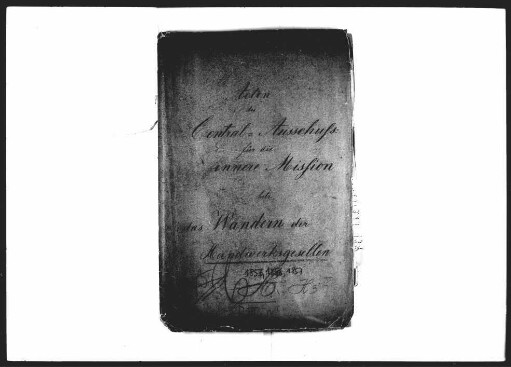 Acten
des
Central-Ausschuß
für die
innere Mission
betr.
das Wandern der
Handwerksgesellen